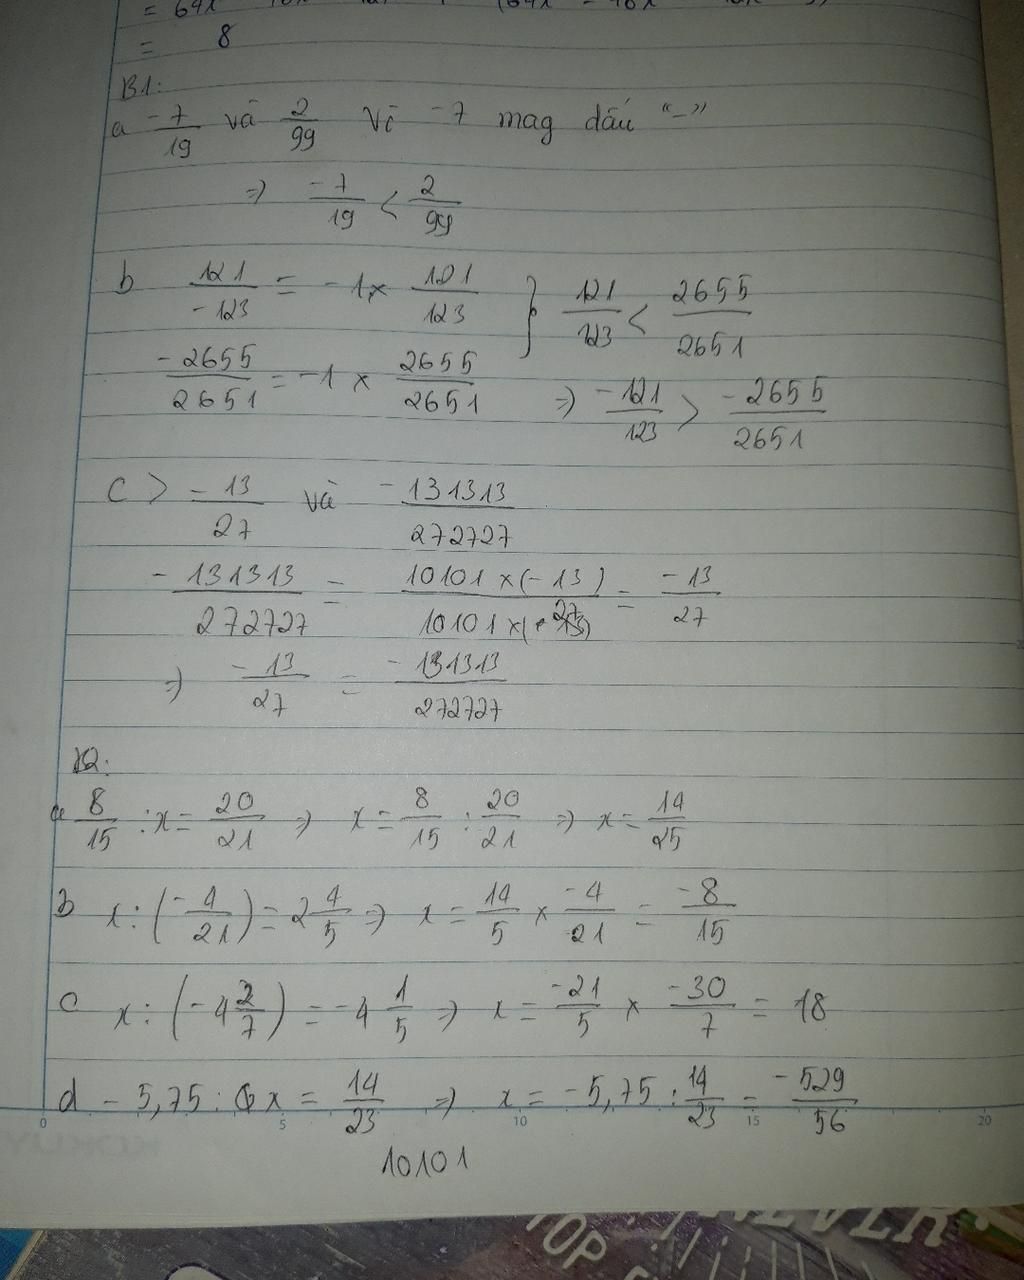 = 8
B1:
a -7/19 và 2/99 Vì -7 mag dấu “-”
=> -7/19 < 2/99
b 121/-123 = -1 x 121/123 } 121/123 < 2655/2651
-2655/2651 = -1 x 2655/2651 => -121/123 > -2655/2651
C > -13/27 và -131313/272727
-131313/272727 = 10101 x (-13)/10101 x ( 27) = -13/27
=> -13/27 = -131313/272727
B2:
a 8/15 : x = 20/21 => x = 8/15 : 20/21 => x = 14/25
b x : (-4/21) = 2 4/5 => x = 14/5 x -4/21 = -8/15
c x : (-4 2/7) = -4 1/5 => x = -21/5 x -30/7 = 18
d - 5,75 : x = 14/23 => x = -5,75 : 14/23 = -529/56
0 5 10 15 20
10101
KOKUY
TOP
NEVER